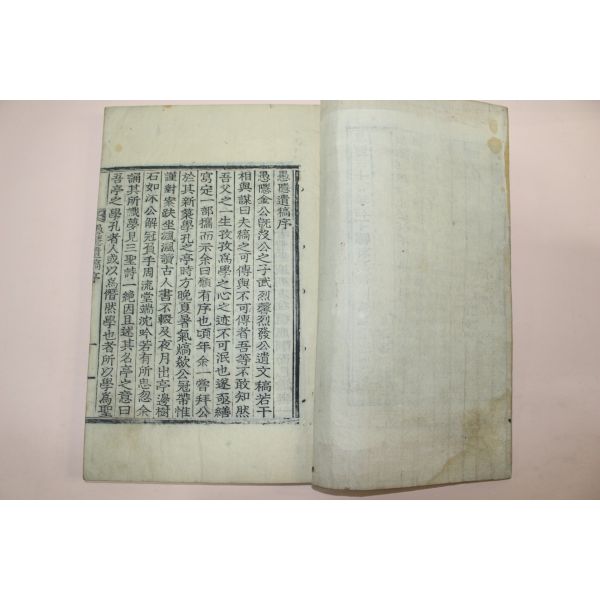 愚隱遺稿序
愚隱金公旣歿公之子武烈馨烈發公遺文稿若干
相與謀曰夫稿之可傳與不可傳者吾等不敢知然
吾父之一生孜孜爲學之心之迹不可泯也遂亟繕
寫定一部攜而示余曰願有序也頃年余一嘗拜公
於其新築學孔之亭時方晩夏暑氣熇歊公冠帶惟
謹對案趺坐溫溫讀古人書不輟及夜月出亭邊樹
石如沐公解冠負手周流堂端沈吟若有所思忽余
誦其所識夢見三聖詩一絶因且述其名亭之意曰
吾亭之學孔者人或以爲僭然學也者所以學爲聖
愚隱遺稿 序 一